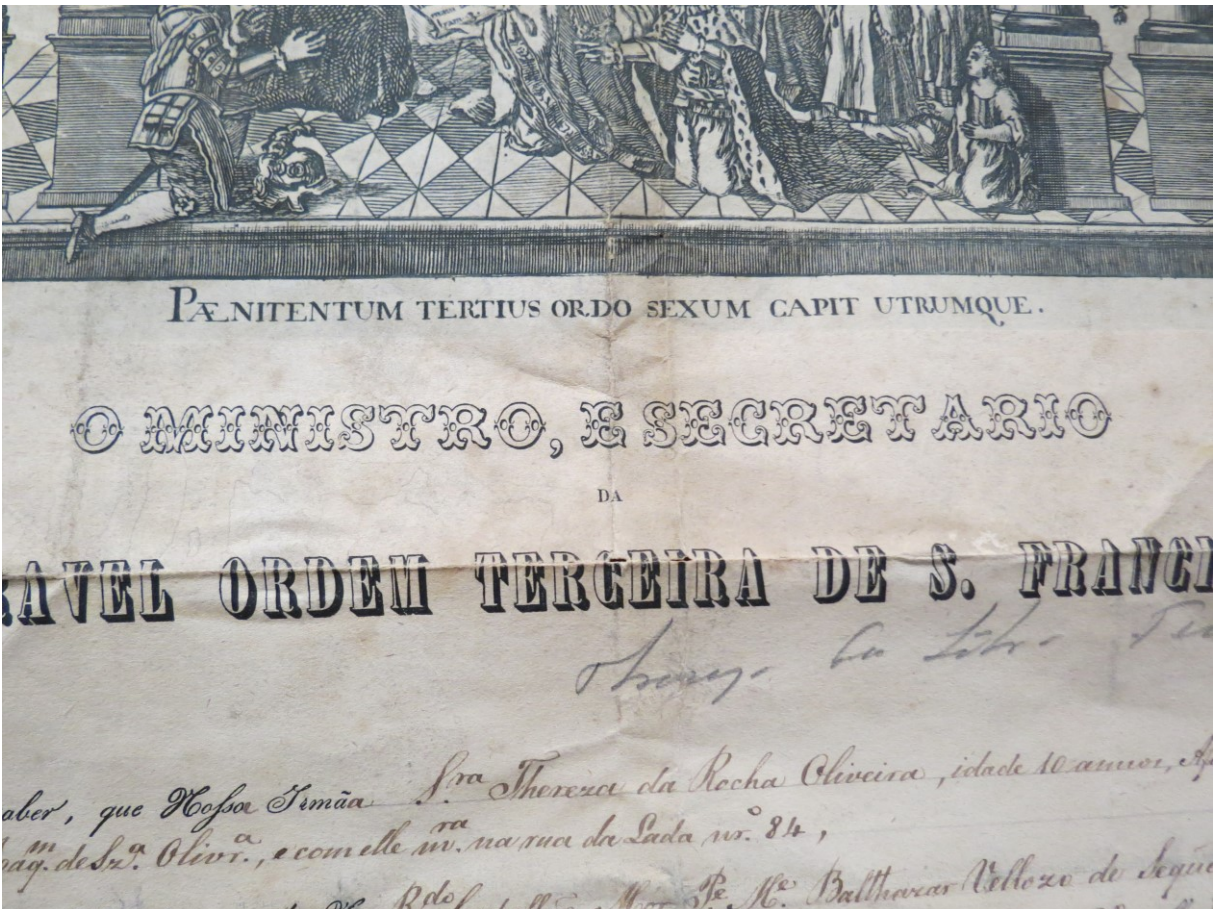 PÆNITENTUM TERTIUS ORDO SEXUM CAPIT UTRUMQUE.
O MINISTRO, E SECRETARIO
DA
RAVEL ORDEM TERCEIRA DE S. FRANCI
aber, que Nossa Irmãa Sra Thereza da Rocha Oliveira, idade 10 annos,
de Sza. Olivra., e com elle mra. na rua da Lada nr. 84,
Rdo Pe. Me. Balthazar Vellozo de Seque